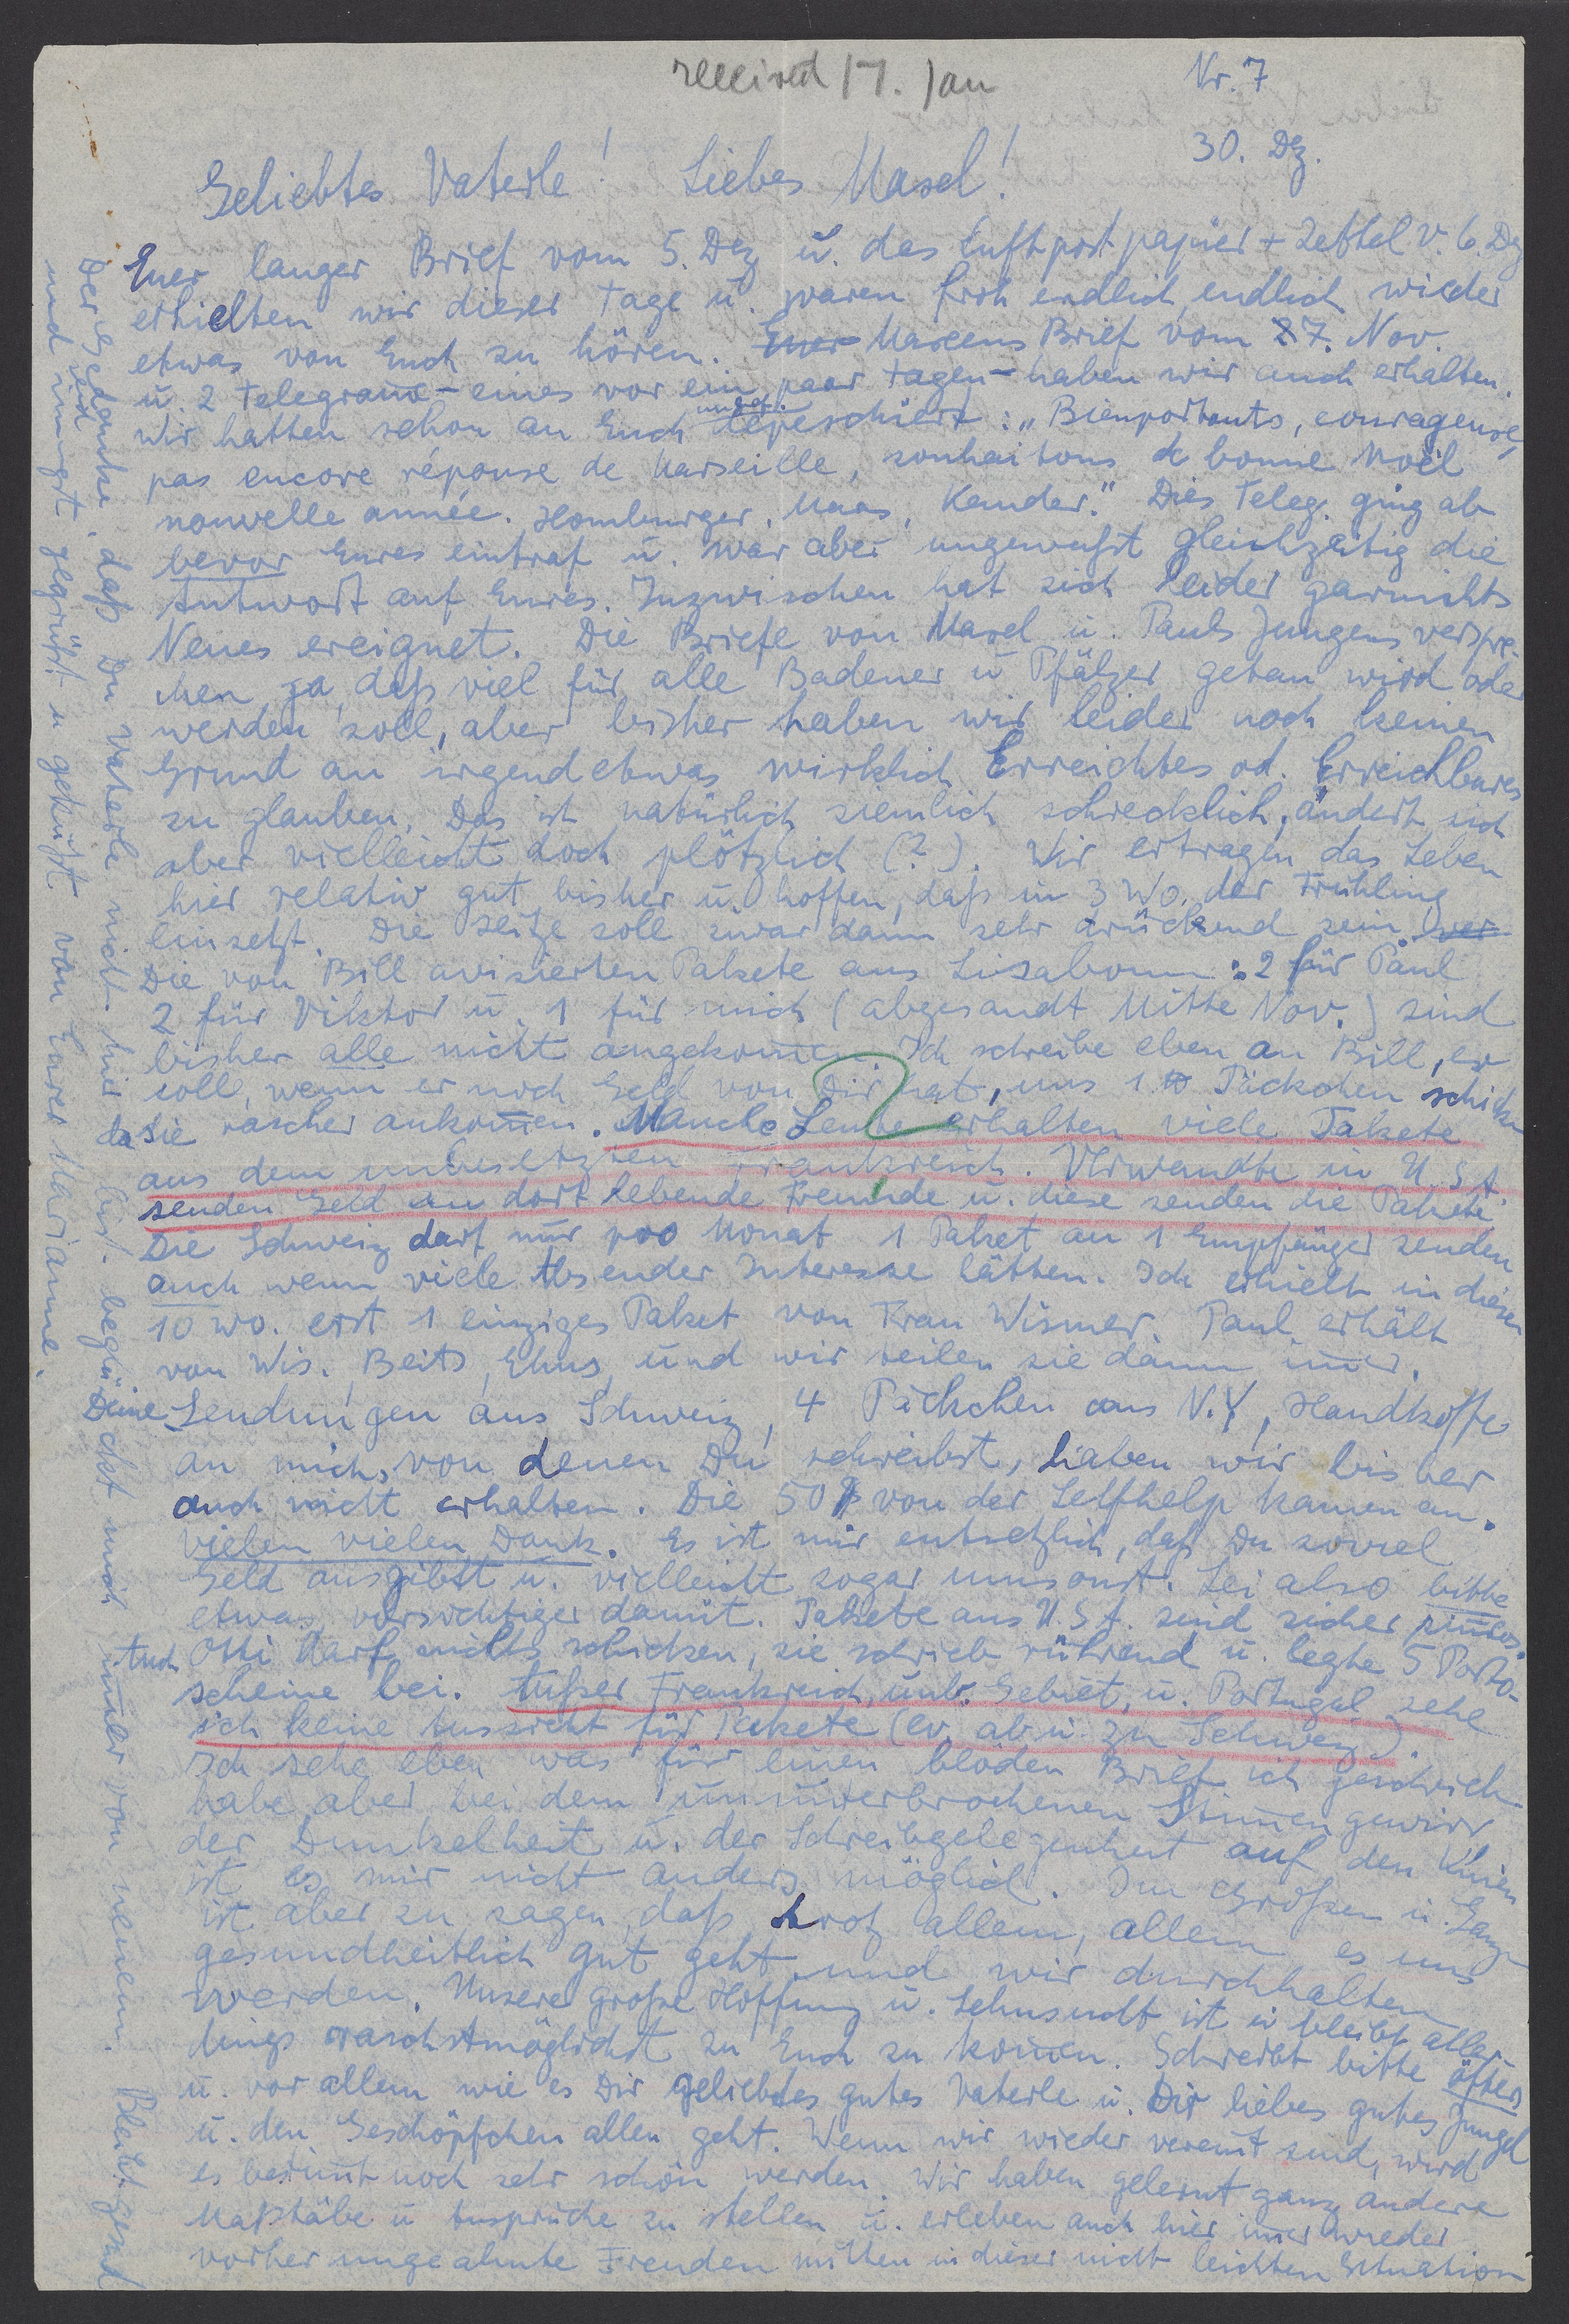 received 17. Jan
Nr. 7
30. Dez.
Geliebtes Vaterle! Liebes Masel!
Euer langer Brief vom 5. Dez u. das Luftpostpapier + Zettel v. 6. Dez
erhielten wir dieser Tage u. waren froh endlich, endlich wieder
etwas von Euch zu hören. Euer Maseens Brief vom 27. Nov.
u. 2 Telegrame - eines vor ein paar Tagen - haben wir auch erhalten.
Wir hatten schon an Euch depeschiert: "Bienportants, courageuse,
pas encore réponse de Marseille, souhaitons de bonne Noël
nouvelle année. Homburger, Maas, Kander." Dies Teleg. ging ab
bevor Eures eintraf u. war aber ungewußt gleichzeitig die
Antwort auf Eures. Inzwischen hat sich leider garnichts
Neues ereignet. Die Briefe von Masel u. Pauls Jungens verspre-
chen ja, daß viel für alle Badener u Pfälzer getan wird oder
werden soll, aber bisher haben wir leider noch keinen
Grund an irgend etwas wirklich Erreichtes od. Erreichbares
zu glauben. Das ist natürlich ziemlich schrecklich, ändert sich
aber vielleicht doch plötzlich (?). Wir ertragen das Leben
hier relativ gut bisher u. hoffen, daß in 3 Wo. der Frühling
einsetzt. Die Hitze soll zwar dann sehr drückend sein. ver
Die von Bill avisierten Pakete aus Lissabonn: 2 für Paul
2 für Viktor u. 1 für mich (abgesandt Mitte Nov.) sind
bisher alle nicht angekomen. Ich schreibe eben an Bill, er
soll, wenn er noch Geld von Dir hat, uns 1 Päckchen schicken
da sie rascher ankomen. Manche Leute erhalten viele Pakete
aus dem unbesetzten Frankreich. Verwandte in U.S.A.
senden Geld an dort lebende Freunde u. diese senden die Pakete
Die Schweiz darf nur pro Monat 1 Paket an 1 Empfänger senden
auch wenn viele Absender Interesse hätten. Ich erhielt in diesen
10 Wo. erst 1 einziges Paket von Frau Wismer. Paul erhält
von Wis., Beits, Ehus, und wir teilen sie dann imer.
Deine Sendungen aus Schweiz, 4 Päckchen aus N.Y., Handkoffer
an mich, von denen Du schreibst, haben wir bisher
auch nicht erhalten. Die 50 $ von der Selfhelp kamen an.
vielen vielen Dank. Es ist mir entsetzlich, daß Du soviel
Geld ausgibst u. vielleicht sogar umsonst. Sei also bitte
etwas vorsichtiger damit. Pakete aus U.S.A. sind sicher sinlos.
Auch Otti darf nichts schicken, sie schrieb rührend u. legte 5 Porto-
scheine bei. Außer Frankreich, unb. Gebiet, u. Portugal sehe
ich keine Aussicht für Pakete (ev. ab u. zu Schweiz).
Ich sehe eben was für einen blöden Brief ich geschrieb.
habe, aber bei dem ununterbrochenen Stimengewirr
der Dunkelheit u. der Schreibgelegenheit auf den Knien
ist es mir nicht anders möglich. Im Großen u. Ganzn
ist aber zu sagen, daß trotz allem, allem es uns
gesundheitlich gut geht und wir durchhalten
werden. Unsere große Hoffnung u. Sehnsucht ist u bleibt aller-
dings raschstmöglichst zu Euch zu komen. Schreibt bitte öfters
u. vor allem wie es Dir geliebtes gutes Vaterle u. Dir liebes gutes Jungel
u. den Geschöpfchen allen geht. Wenn wir wieder vereint sind, wird
es bestimt noch sehr schön werden. Wir haben gelernt ganz andere
Maßstäbe u Ansprüche zu stellen u. erleben auch hier imer wieder
vorher ungeahnte Freuden mitten in dieser nicht leichten Situation
Der Gedanke, daß Du Vaterle nicht hier bist beglücket mich imer von neuem. Bleibt gesund
und seid innigst gegrüßt u geküßt von Eurer Marianne.